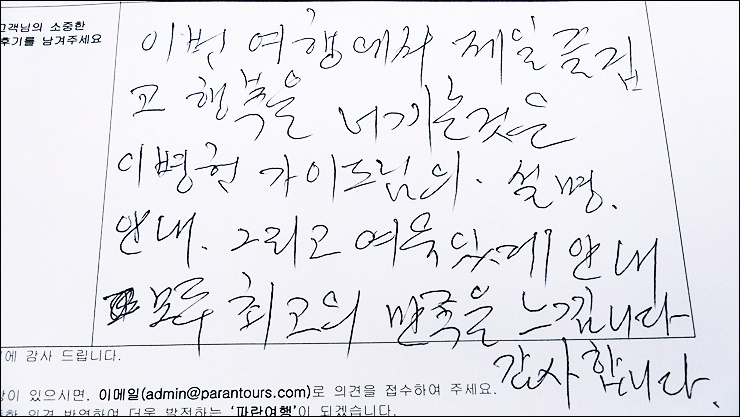 고객님의 소중한
후기를 남겨주세요
이번 여행에서 제일 즐겁
고 행복을 너끼는것은
이병헌 가이드님의. 설명.
안내. 그리고 여유있게 안내
모두 최고의 만족을 느낍니다
감사합니다.
에 감사 드립니다.
이 있으시면, 이메일(admin@parantours.com)로 의견을 접수하여 주세요.
의견 반영하여 더욱 발전하는 '파란여행'이 되겠습니다.